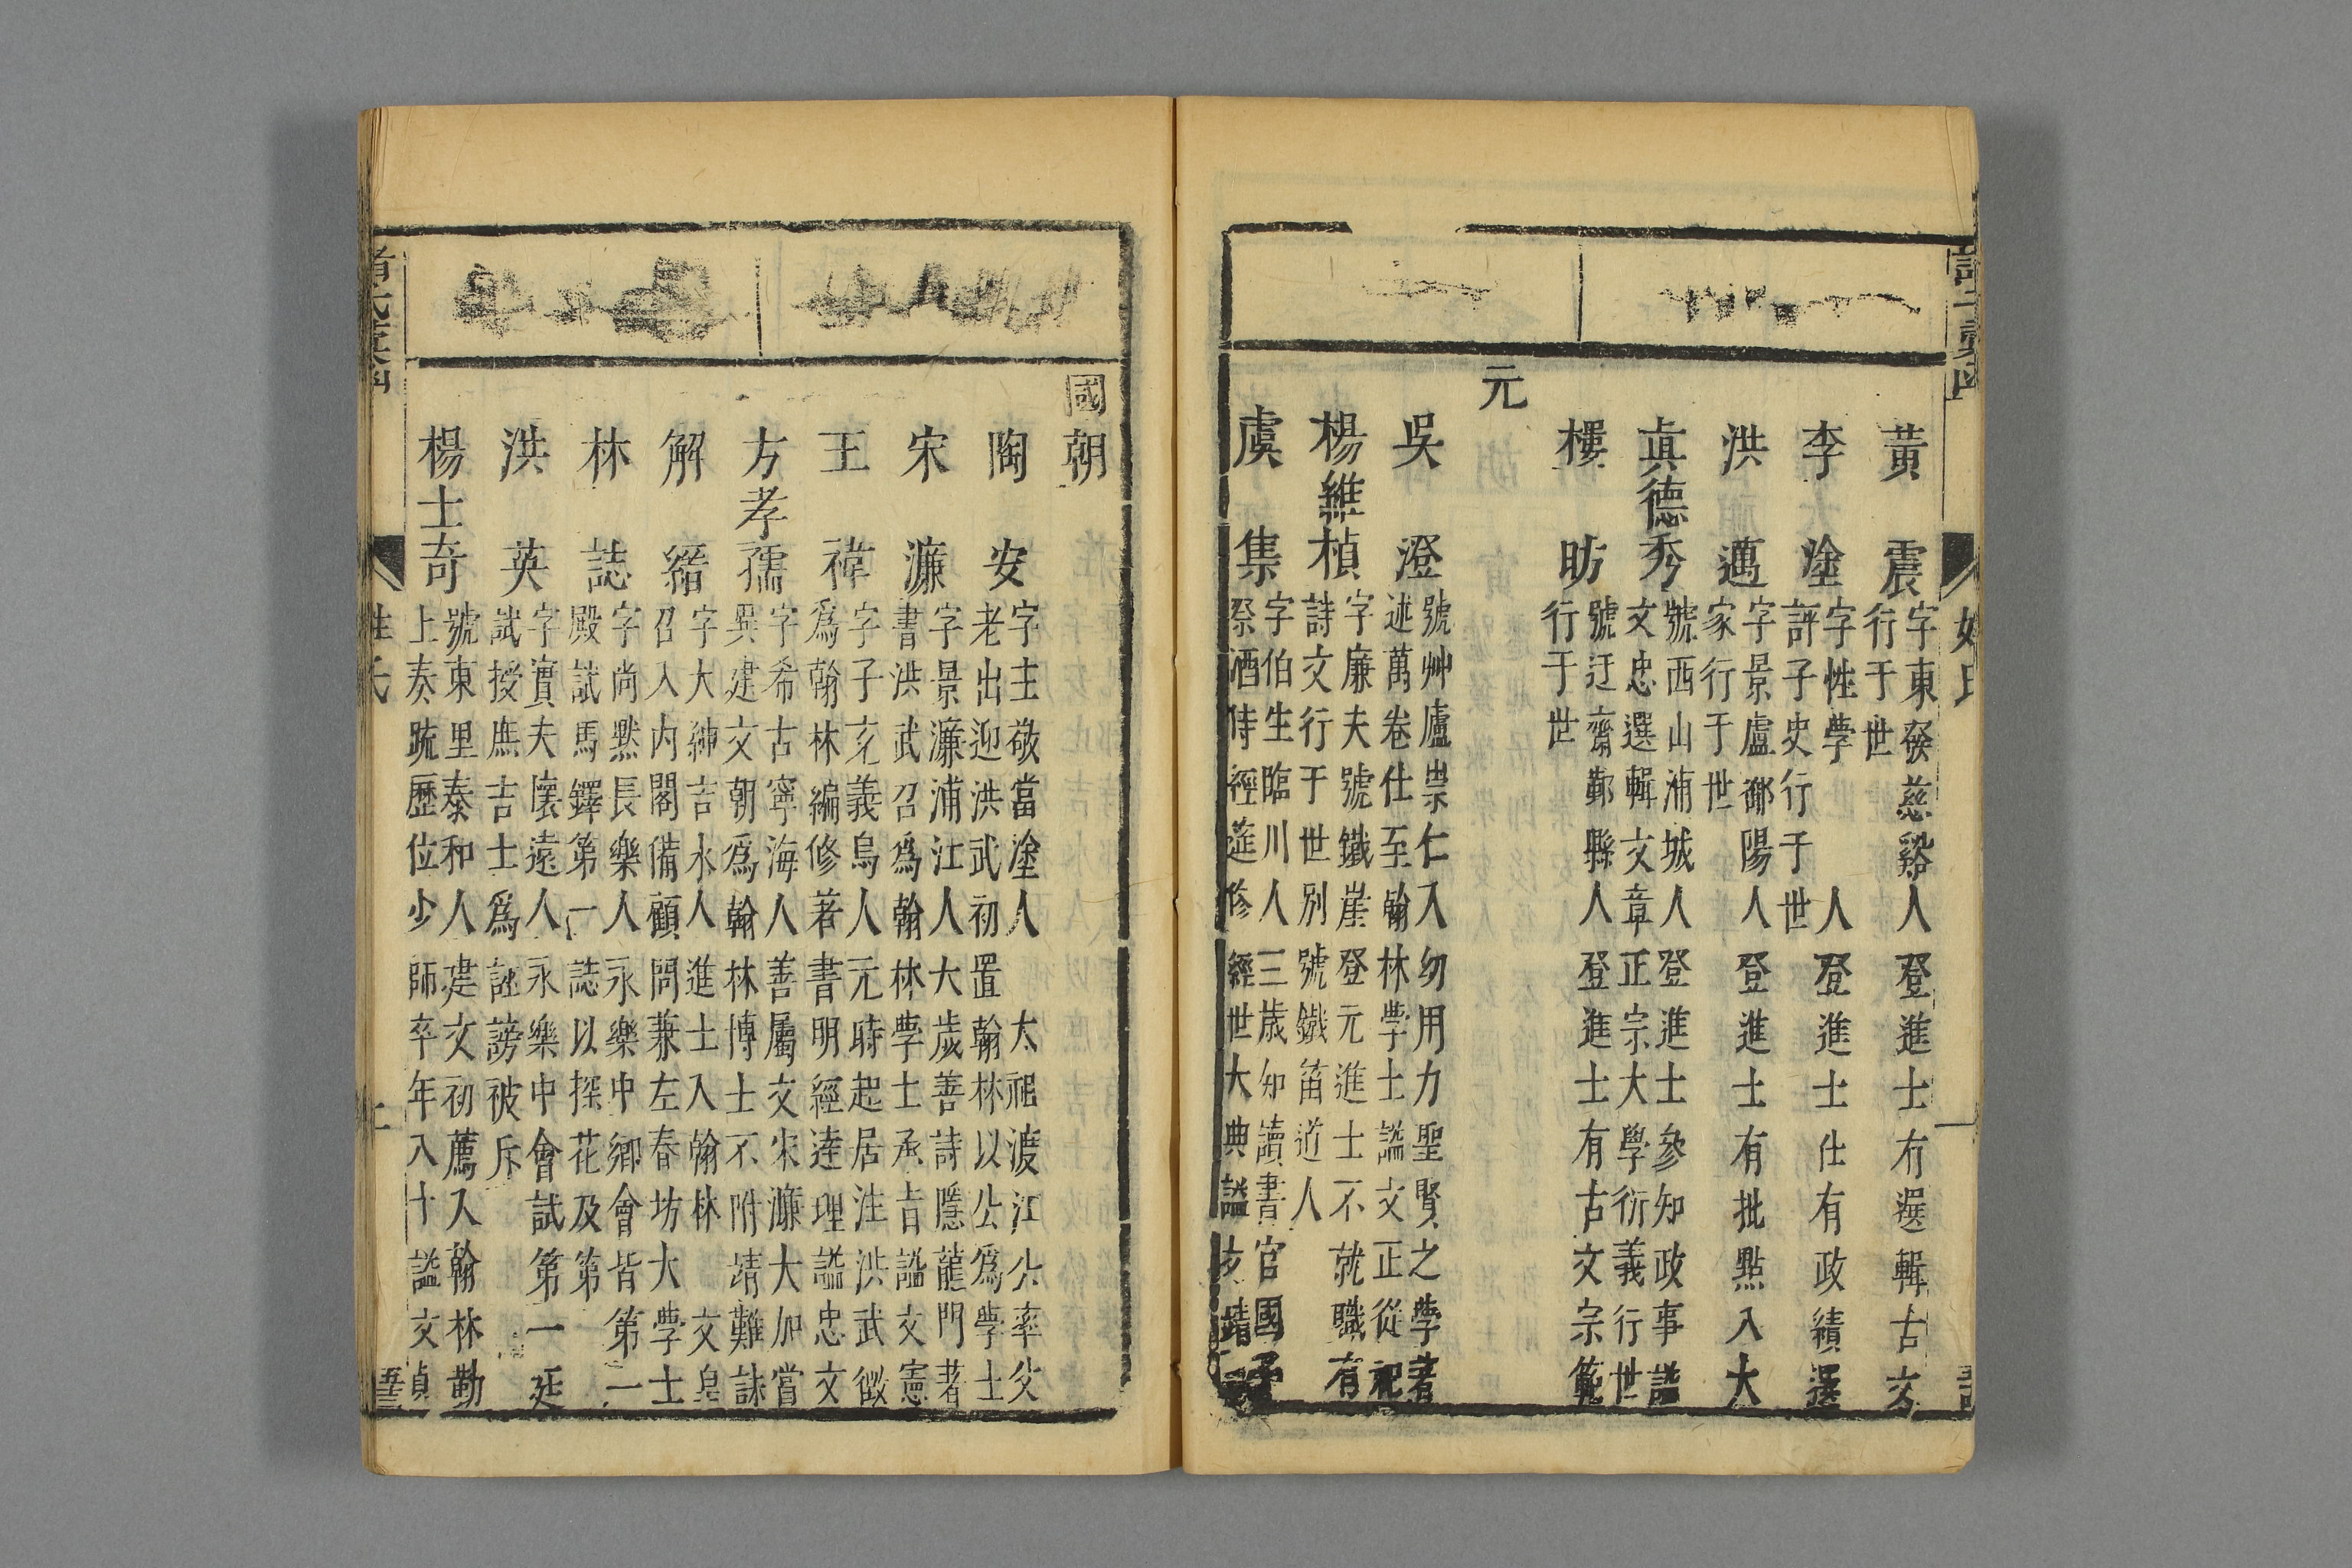 黃　震
字東發慈谿人登進士有選輯古文
行于世
李　塗
字性學　　人登進士仕有政績選
評子史行于世
洪　邁
字景盧鄱陽人登進士有批點入大
家行于世
眞德秀
號西山浦城人登進士參知政事諡
文忠選輯文章正宗大學衍義行世
樓　昉
號迂齋鄞縣人登進士有古文宗範
行于世
元
吳　澄
號艸廬崇仁入幼用力聖賢之學著
述萬卷仕至翰林學士諡文正從祀
楊維楨
字廉夫號鐵崖登元進士不就職有
詩文行于世別號鐵笛道人
虞　集
字伯生臨川人三歲知讀書官國子
祭酒侍經筵修經世大典諡文靖
國朝
陶　安
字主敬當塗人　太祖渡江公率父
老出迎洪武初置翰林以公爲學士
宋　濂
字景濂浦江人大歲善詩隱龍門著
書洪武召爲翰林學士承旨諡文憲
王　褘
字子充義烏人元時起居注洪武徵
爲翰林編修著書明經達理諡忠文
方孝孺
字希古寧海人善屬文宋濂大加嘗
異建文朝爲翰林博士不附靖難誅
解　縉
字大紳吉水人進士入翰林　文皇
召入內閣備顧問兼左春坊大學士
林　誌
字尚黙長樂人永樂中鄉會皆第一
殿試馬鐸第一誌以探花及第
洪　英
字實夫懷遠人永樂中會試第一廷
試授庶吉士爲誣謗被斥
楊士奇
號東里泰和人建文初薦入翰林勤
上奏疏歷位少師卒年八十諡文貞
姓氏